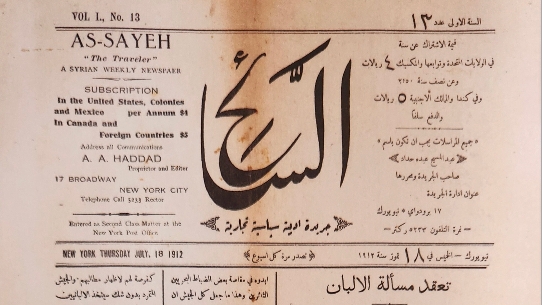 VOL I., No. 13
السنة الاولى عدد ١٣
AS-SAYEH
"The Traveler"
A SYRIAN WEEKLY NEWSPAER
SUBSCRIPTION
In the United States, Colonies
and Mexico per Annum $4
In Canada and
Foreign Countries $5
Address all Communications
A. A. HADDAD
Proprietor and Editor
17 BROADWAY
NEW YORK CITY
Telephone Call 5233 Rector
Entered as Second Class Matter at the
New York Post Office
السائح
جريدة ادبية سياسية تجارية
قيمة الاشتراك عن سنة
في الولايات المتحدة وتوابعها والمكسيك ٤ ريالات
وعن نصف سنة ٢٬٥٠
وفي كندا والممالك الاجنبية ٥ ريالات
والدفع سلفا
«جميع المراسلات يجب ان تكون باسم»
عبد المسيح عبده حداد
صاحب الجريدة ومحررها
عنوان ادارة الجريدة
١٧ برودواي * نيويورك
نمرة التلفون ٥٢٣٣ ركتر
NEW YORK THURSDAY JULY, 18 1912
تصدر مرة كل اسبوع
نيويورك - الخميس في ١٨ تموز سنة ١٩١٢
تعقد مسألة الالبان
ابدوه في مقاومة بعض الضباط الحربيين
كفرصة لهم لاظهار مطاليبهم والجيش